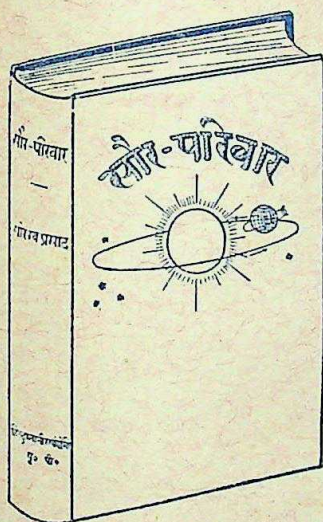 सौर-परिवार
सौर-परिवार
गोरख प्रसाद
यू० पी०